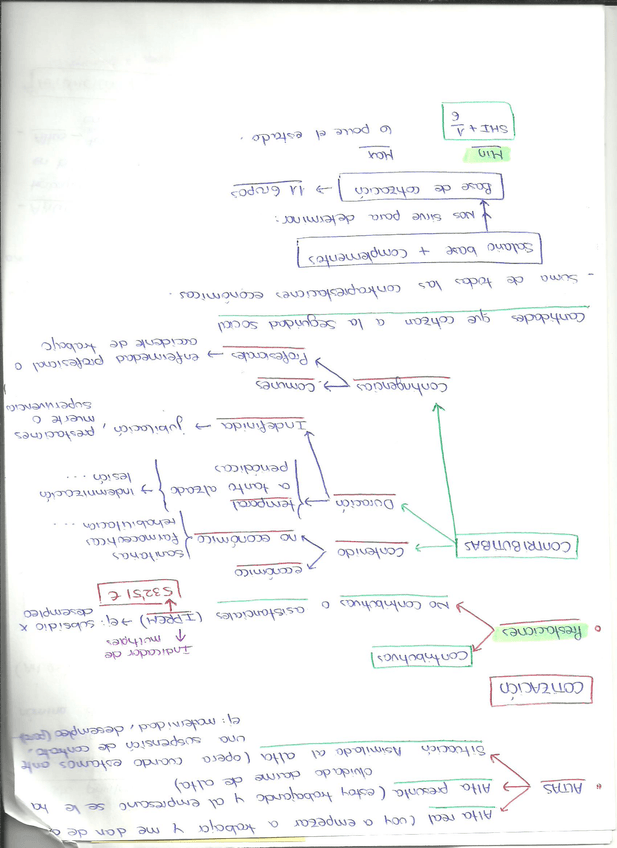 Alta real (voy a empezar a trabajar y me dan de a
• ALTAS → Alta presunta (estoy trabajando y al empresario se le ha
olvidado darme de alta)
Situación Asimilada al alta (opera cuando estamos ante
una suspensión de contrato,
ej: maternidad, desempleo
COTIZACIÓN
Contributivas
Prestaciones
Indicador de
multiples
No contributivas o asistenciales (IPREM) → ej: subsidio x
desempleo
532'51 €
económico
CONTRIBUTIBAS → Contenido → no económico
sanitarias
farmaceúticas
rehabilitación ...
Duración → temporal
a tanto alzado
periódicas
→ indemnización
lesión ...
Indefinida → jubilación, prestaciones
muerte o
supervivencia
Contingencias → Comunes
Profesionales → enfermedad profesional o
accidente de trabajo
Cantidades que cotizan a la seguridad social
- Suma de todas las contraprestaciones económicas.
Salario base + Complementos
Nos sirve para determinar:
Base de cotización → 11 Grupos
Min Max
SMI + 1/6 lo pone el estado.